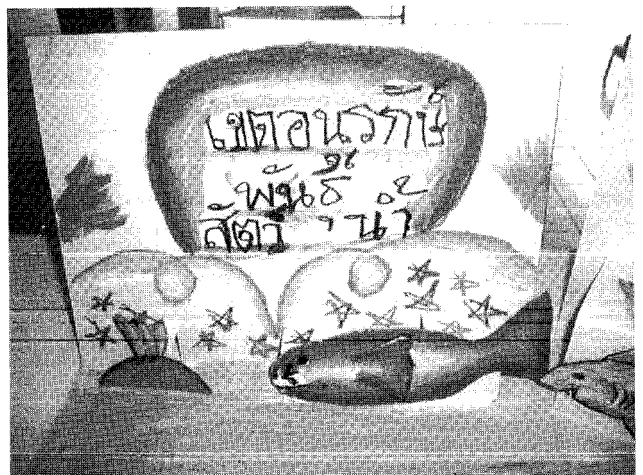 เขตอนุรักษ์
พันธุ์
สัตว์น้ำ